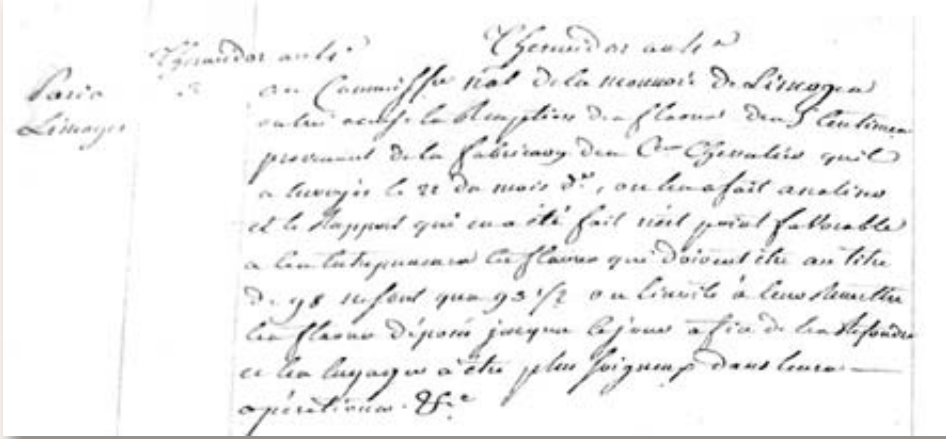 Thermidor an 4e Thermidor an 4e
Paris 3 au Commissre nal de la monnoie de Limoges
Limoges on lui accuse la Réception des flaons de 5 Centimes
provenant de la fabricaon des Cens Chevaliers quil
a Envoyés le 22 du mois dr, on les a fait analiser
et le Rapport qui en a été fait n'est point favorable
a les Entrepreneurs les flaons qui doivent être au titre
de 98 ne sont qua 93 1/2 on L'invite à leur Remettre
les flaons déposés jusqua ce jour afin de les Refondre
et les Engager à être plus soigneux dans leurs
opérations. &c